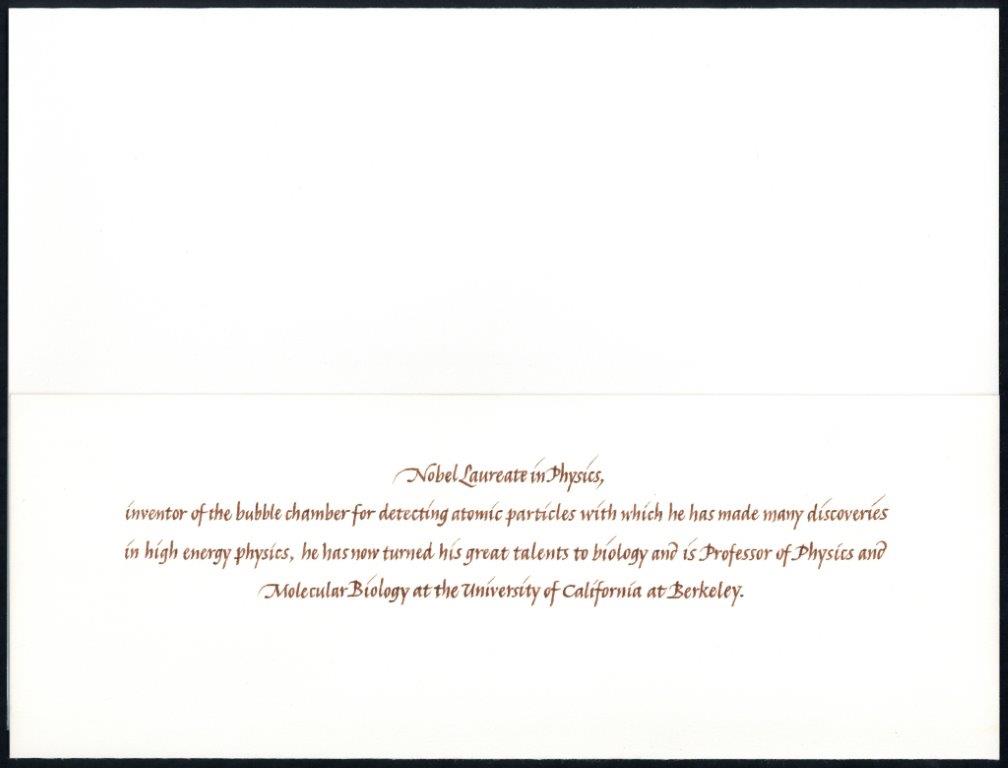 Nobel Laureate in Physics,
inventor of the bubble chamber for detecting atomic particles with which he has made many discoveries
in high energy physics, he has now turned his great talents to biology and is Professor of Physics and
Molecular Biology at the University of California at Berkeley.